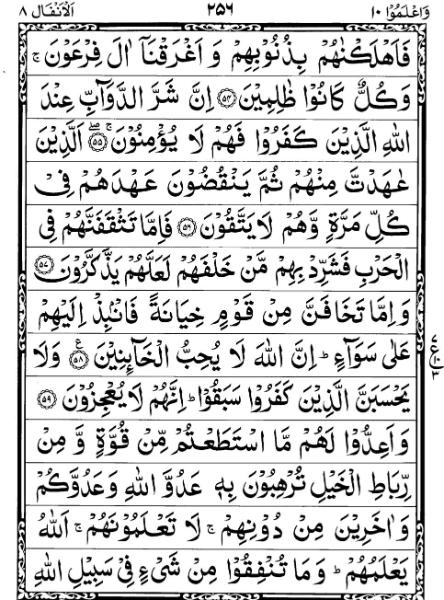 وَاعْلَمُوْٓا ١٠ ٢٥٦ اَلْاَنْفَال ٨
فَاَهْلَكْنٰهُمْ بِذُنُوْبِهِمْ وَ اَغْرَقْنَاۤ اٰلَ فِرْعَوْنَ ۚ
وَ كُلٌّ كَانُوْا ظٰلِمِيْنَ ﴿٥٤﴾ اِنَّ شَرَّ الدَّوَآبِّ عِنْدَ
اللّٰهِ الَّذِيْنَ كَفَرُوْا فَهُمْ لَا يُؤْمِنُوْنَ ﴿٥٥﴾ اَلَّذِيْنَ
عٰهَدْتَّ مِنْهُمْ ثُمَّ يَنْقُضُوْنَ عَهْدَهُمْ فِيْ
كُلِّ مَرَّةٍ وَّهُمْ لَا يَتَّقُوْنَ ﴿٥٦﴾ فَاِمَّا تَثْقَفَنَّهُمْ فِي
الْحَرْبِ فَشَرِّدْ بِهِمْ مَّنْ خَلْفَهُمْ لَعَلَّهُمْ يَذَّكَّرُوْنَ ﴿٥٧﴾
وَ اِمَّا تَخَافَنَّ مِنْ قَوْمٍ خِيَانَةً فَانْۢبِذْ اِلَيْهِمْ
عَلٰى سَوَآءٍ ؕ اِنَّ اللّٰهَ لَا يُحِبُّ الْخَآئِنِيْنَ ﴿٥٨﴾ وَلَا
يَحْسَبَنَّ الَّذِيْنَ كَفَرُوْا سَبَقُوْا ؕ اِنَّهُمْ لَا يُعْجِزُوْنَ ﴿٥٩﴾
وَ اَعِدُّوْا لَهُمْ مَّا اسْتَطَعْتُمْ مِّنْ قُوَّةٍ وَّ مِنْ
رِّبَاطِ الْخَيْلِ تُرْهِبُوْنَ بِهٖ عَدُوَّ اللّٰهِ وَعَدُوَّكُمْ
وَ اٰخَرِيْنَ مِنْ دُوْنِهِمْ ۚ لَا تَعْلَمُوْنَهُمْ ۚ اَللّٰهُ
يَعْلَمُهُمْ ؕ وَ مَا تُنْفِقُوْا مِنْ شَيْءٍ فِيْ سَبِيْلِ اللّٰهِ